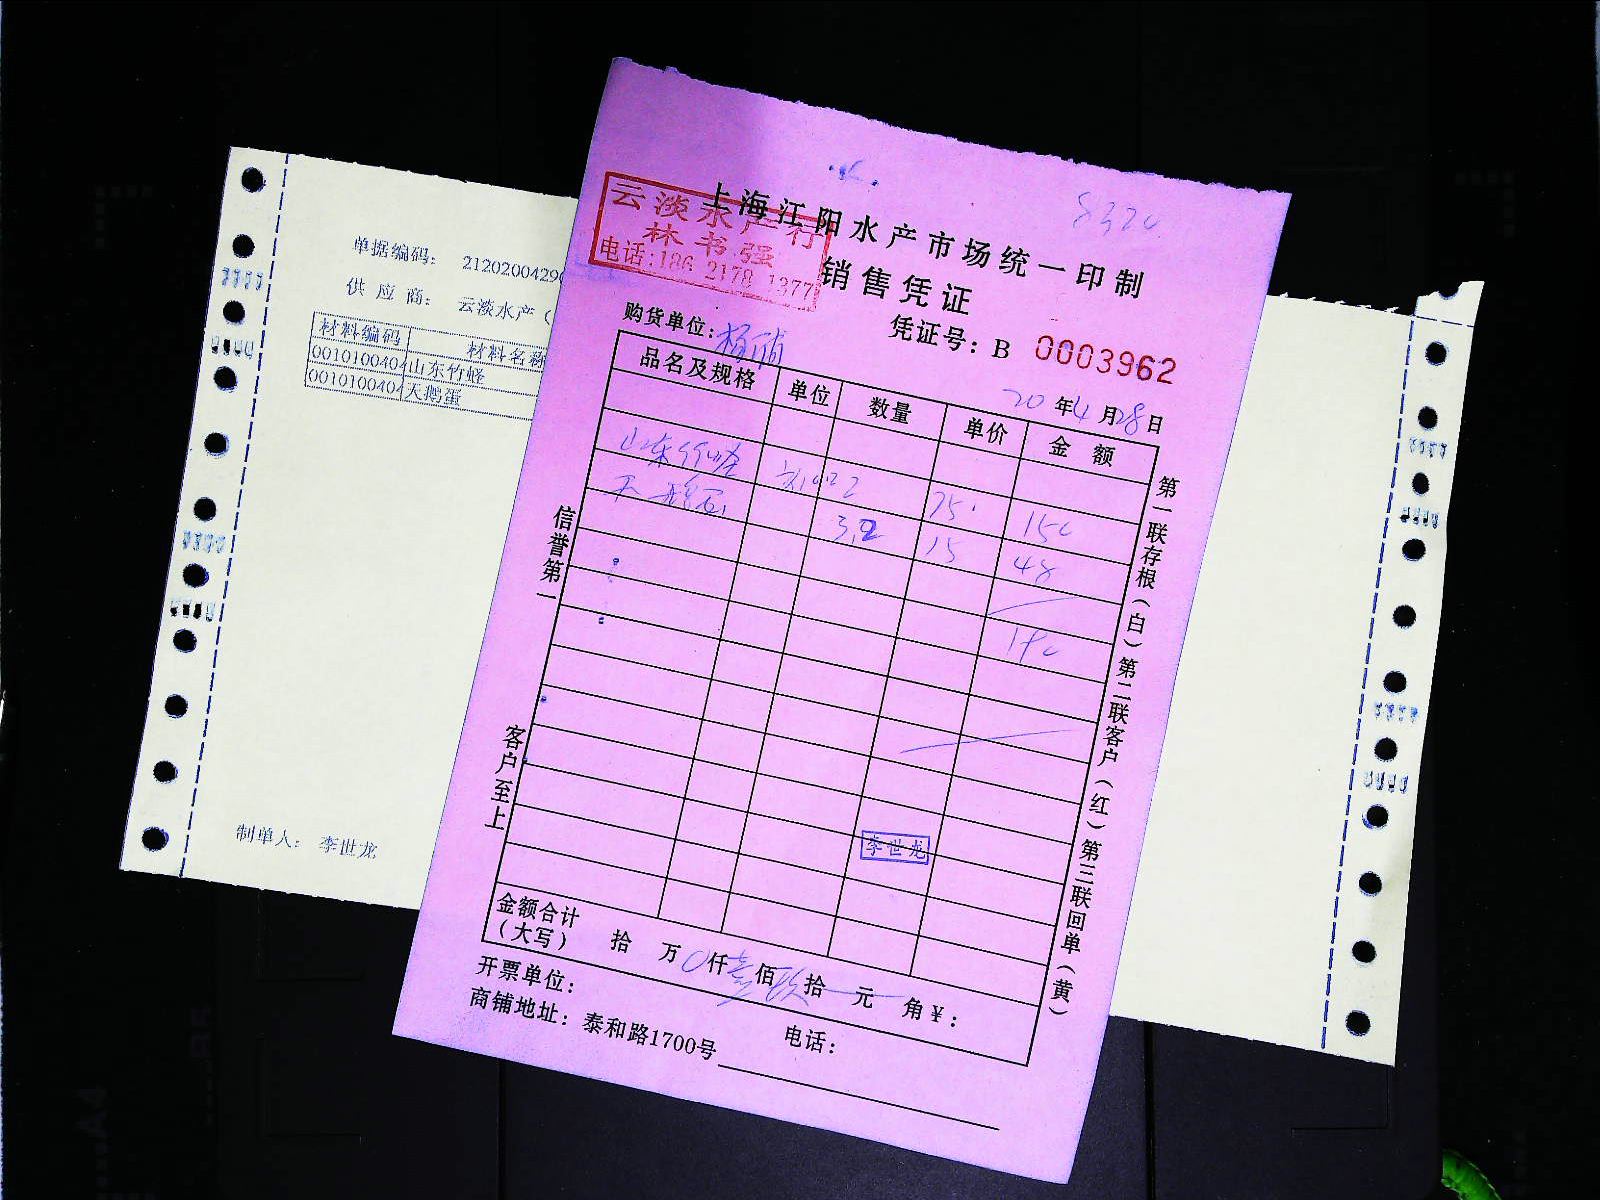 单据编码： 2120200429
供 应 商： 云淡水产（
材料编码 材料名称
0010100404 山东竹蛏
0010100404 天鹅蛋
制单人： 李世龙
8320
上海江阳水产市场统一印制
云淡水产行
林书强
电话:186 2178 1377
销售凭证
购货单位:
凭证号：B 0003962
20 年 4 月 28 日
品名及规格 单位 数量 单价 金 额
山东竹蛏 2 75 150
天鹅蛋 3.2 15 48
信誉第一
客户至上
李世龙
第一联存根（白）第二联客户（红）第三联回单（黄）
金额合计（大写） 拾 万 0 仟 壹 佰 玖 拾 元 角 ¥：
开票单位：
电话：
商铺地址：泰和路1700号